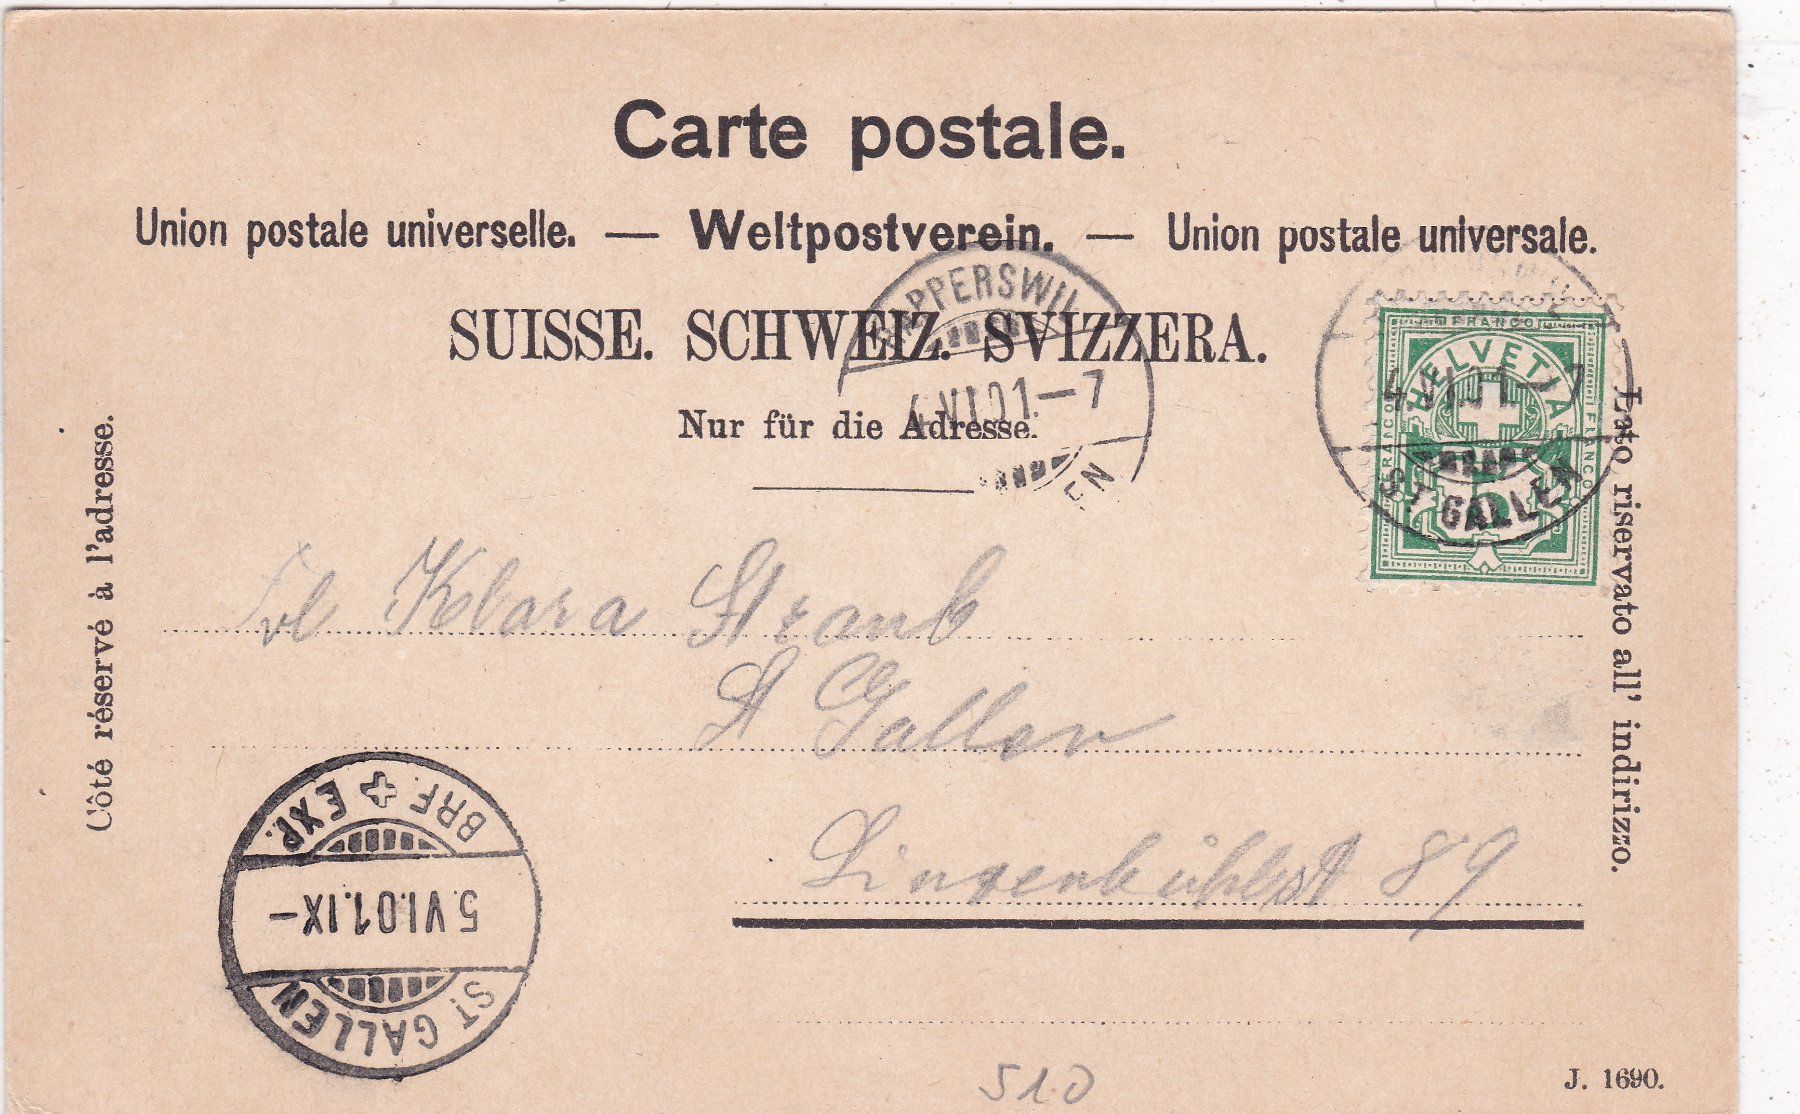 Carte postale.
Union postale universelle. — Weltpostverein. — Union postale universale.
SUISSE. SCHWEIZ. SVIZZERA.
Nur für die Adresse.
RAPPERSWIL
4.VI.01.–7
EN
FRANCO
HELVETIA
FRANCO
FRANCO
4.VI.01–7
ST. GALLEN
Côté réservé à l'adresse.
Lato riservato all' indirizzo.
Frl Klara Straub
St Gallen
Linsenbühlst 89
BRF. + EXP.
5.VI.01.IX–
ST. GALLEN
510
J. 1690.